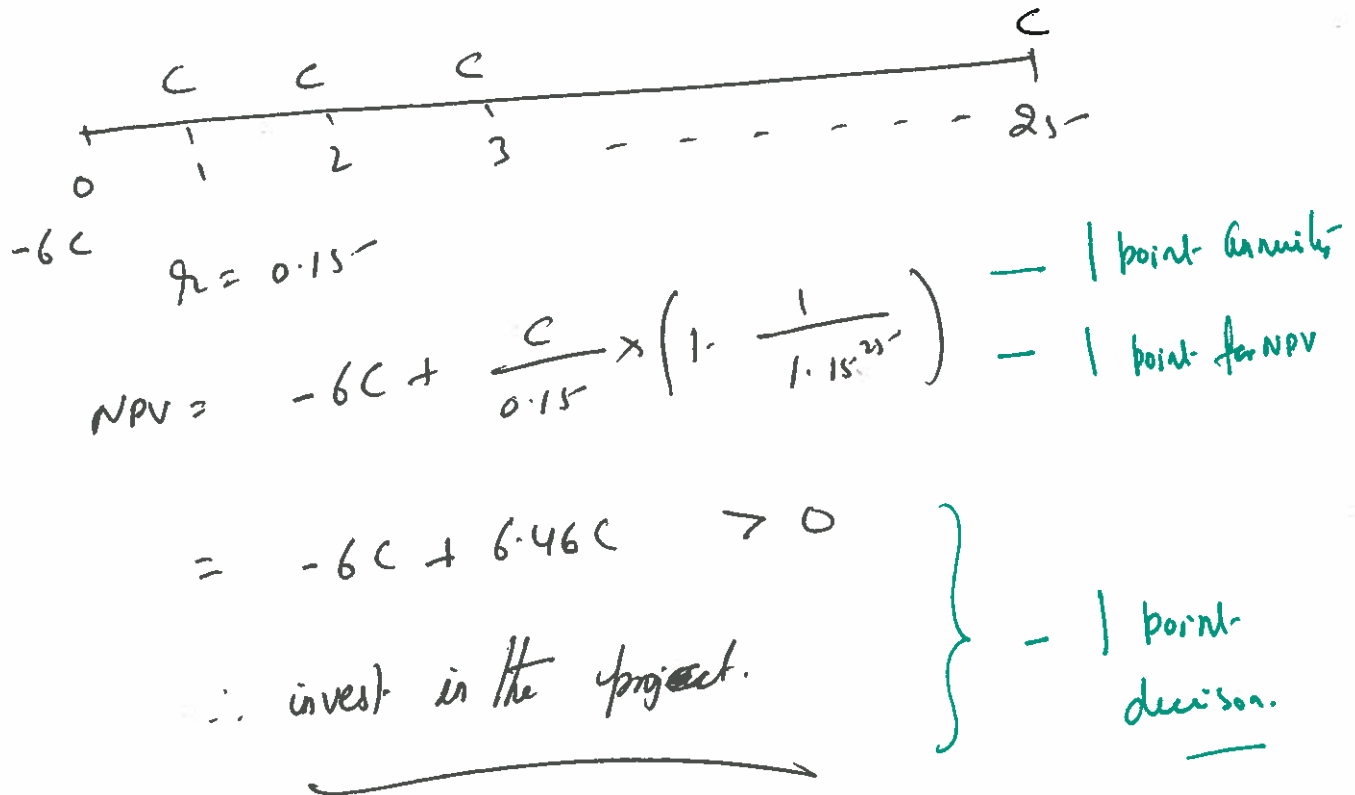 C C C C
0 1 2 3 - - - - - - - 25
-6C
r = 0.15
NPV = -6C + C/0.15 × (1 - 1/1.15^25) — 1 point annuity
— 1 point for NPV
= -6C + 6.46C > 0
∴ invest in the project.
- 1 point
decison.